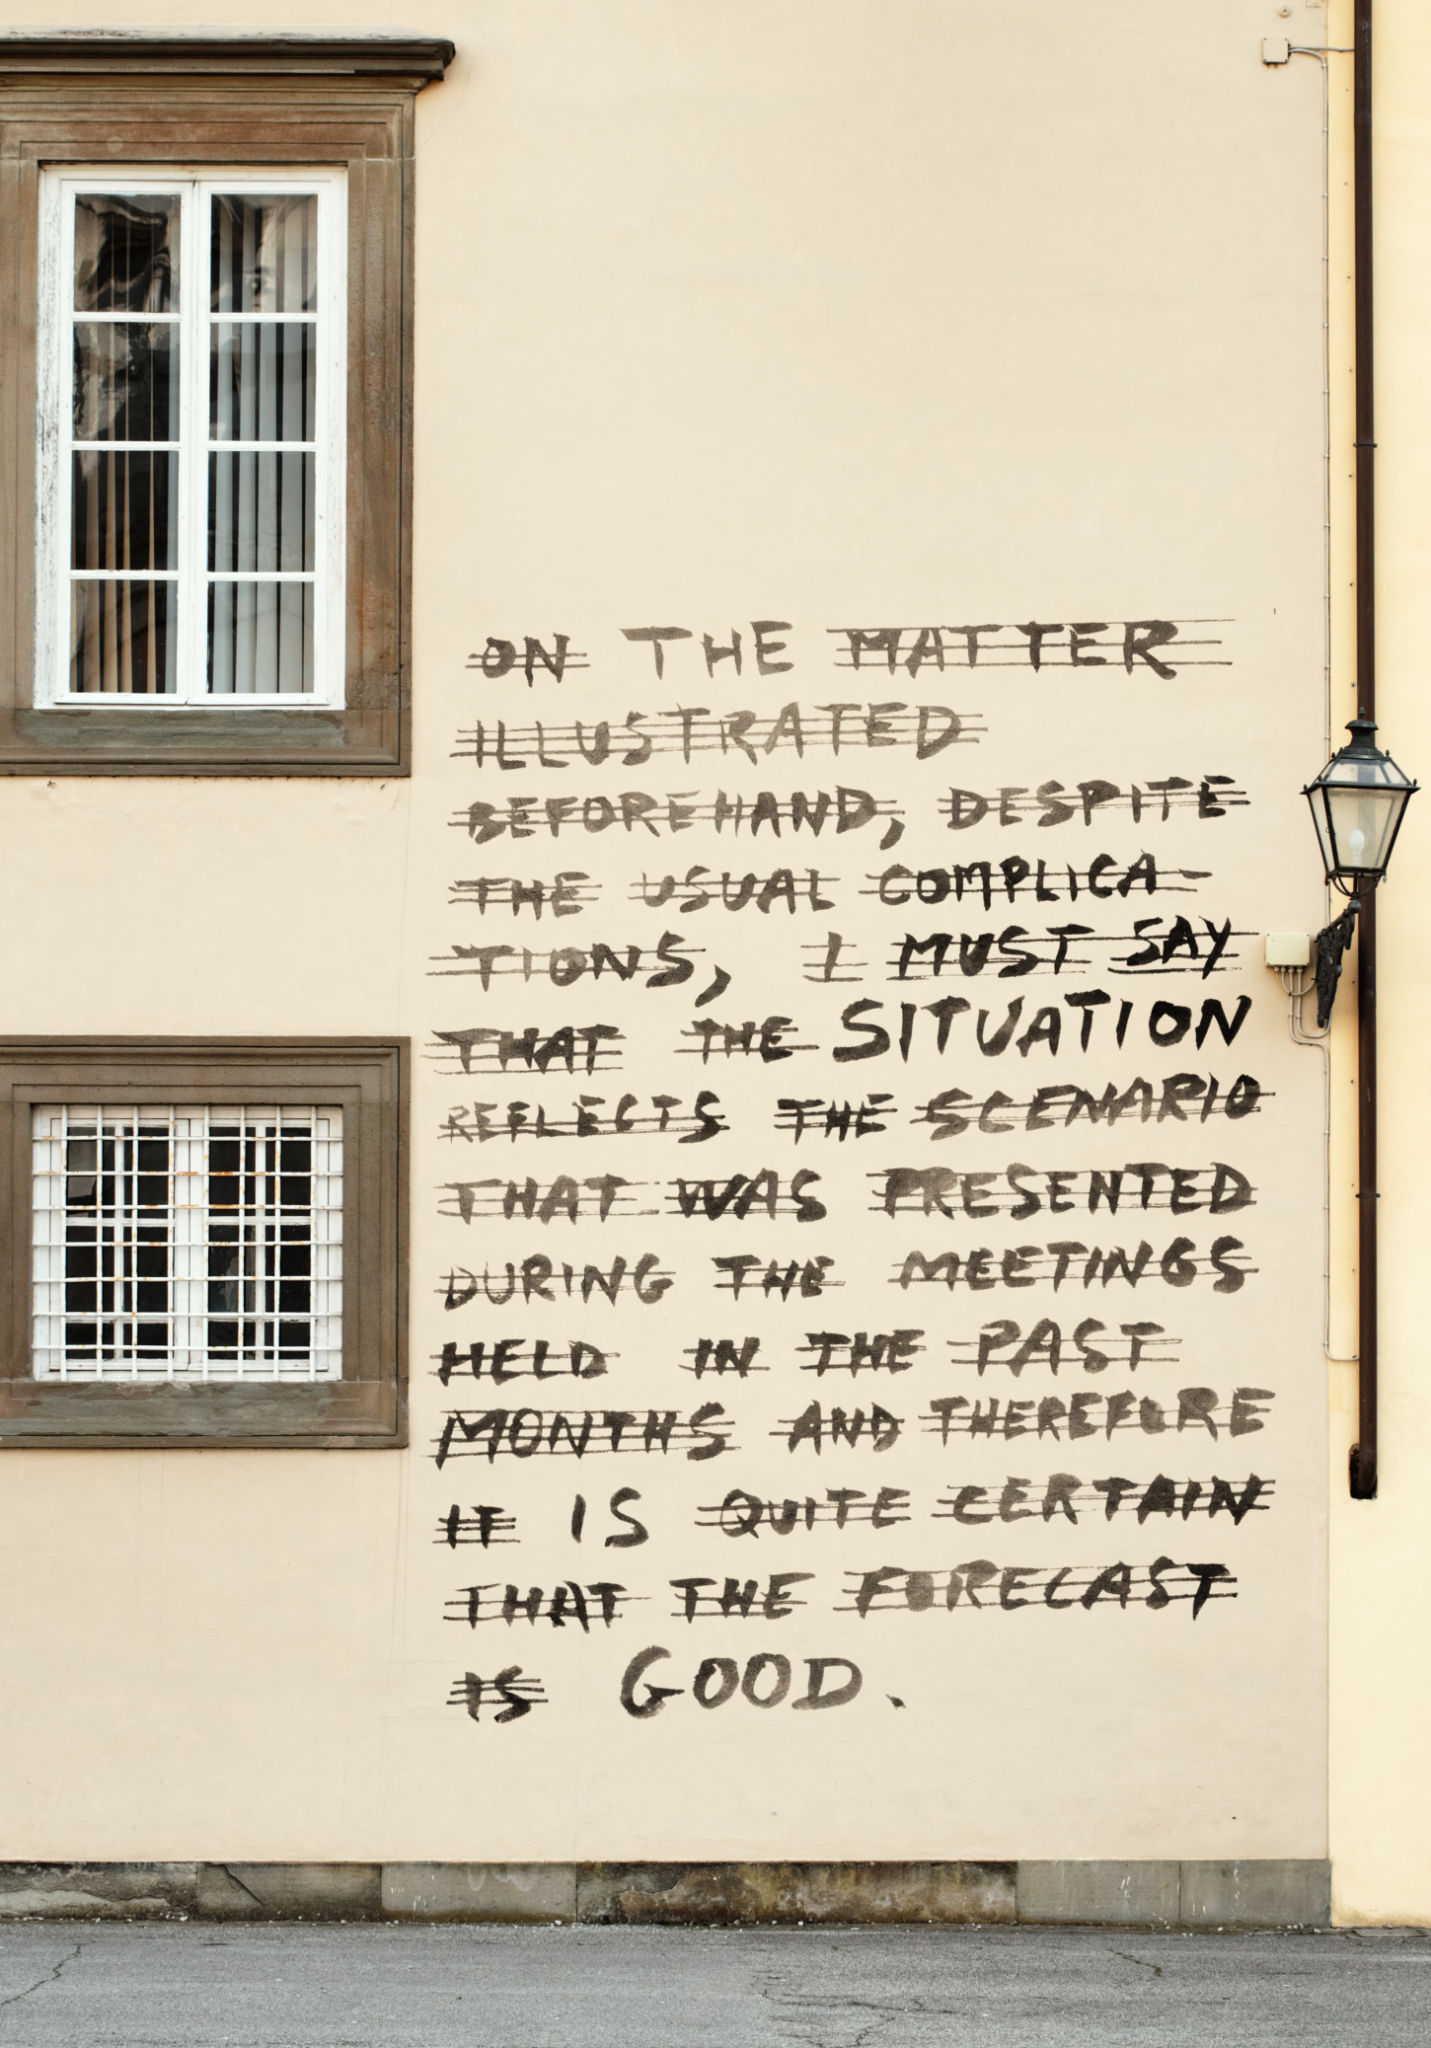 ON THE MATTER
ILLUSTRATED
BEFOREHAND, DESPITE
THE USUAL COMPLICA-
TIONS, I MUST SAY
THAT THE SITUATION
REFLECTS THE SCENARIO
THAT WAS PRESENTED
DURING THE MEETINGS
HELD IN THE PAST
MONTHS AND THEREFORE
IT IS QUITE CERTAIN
THAT THE FORECAST
IS GOOD.